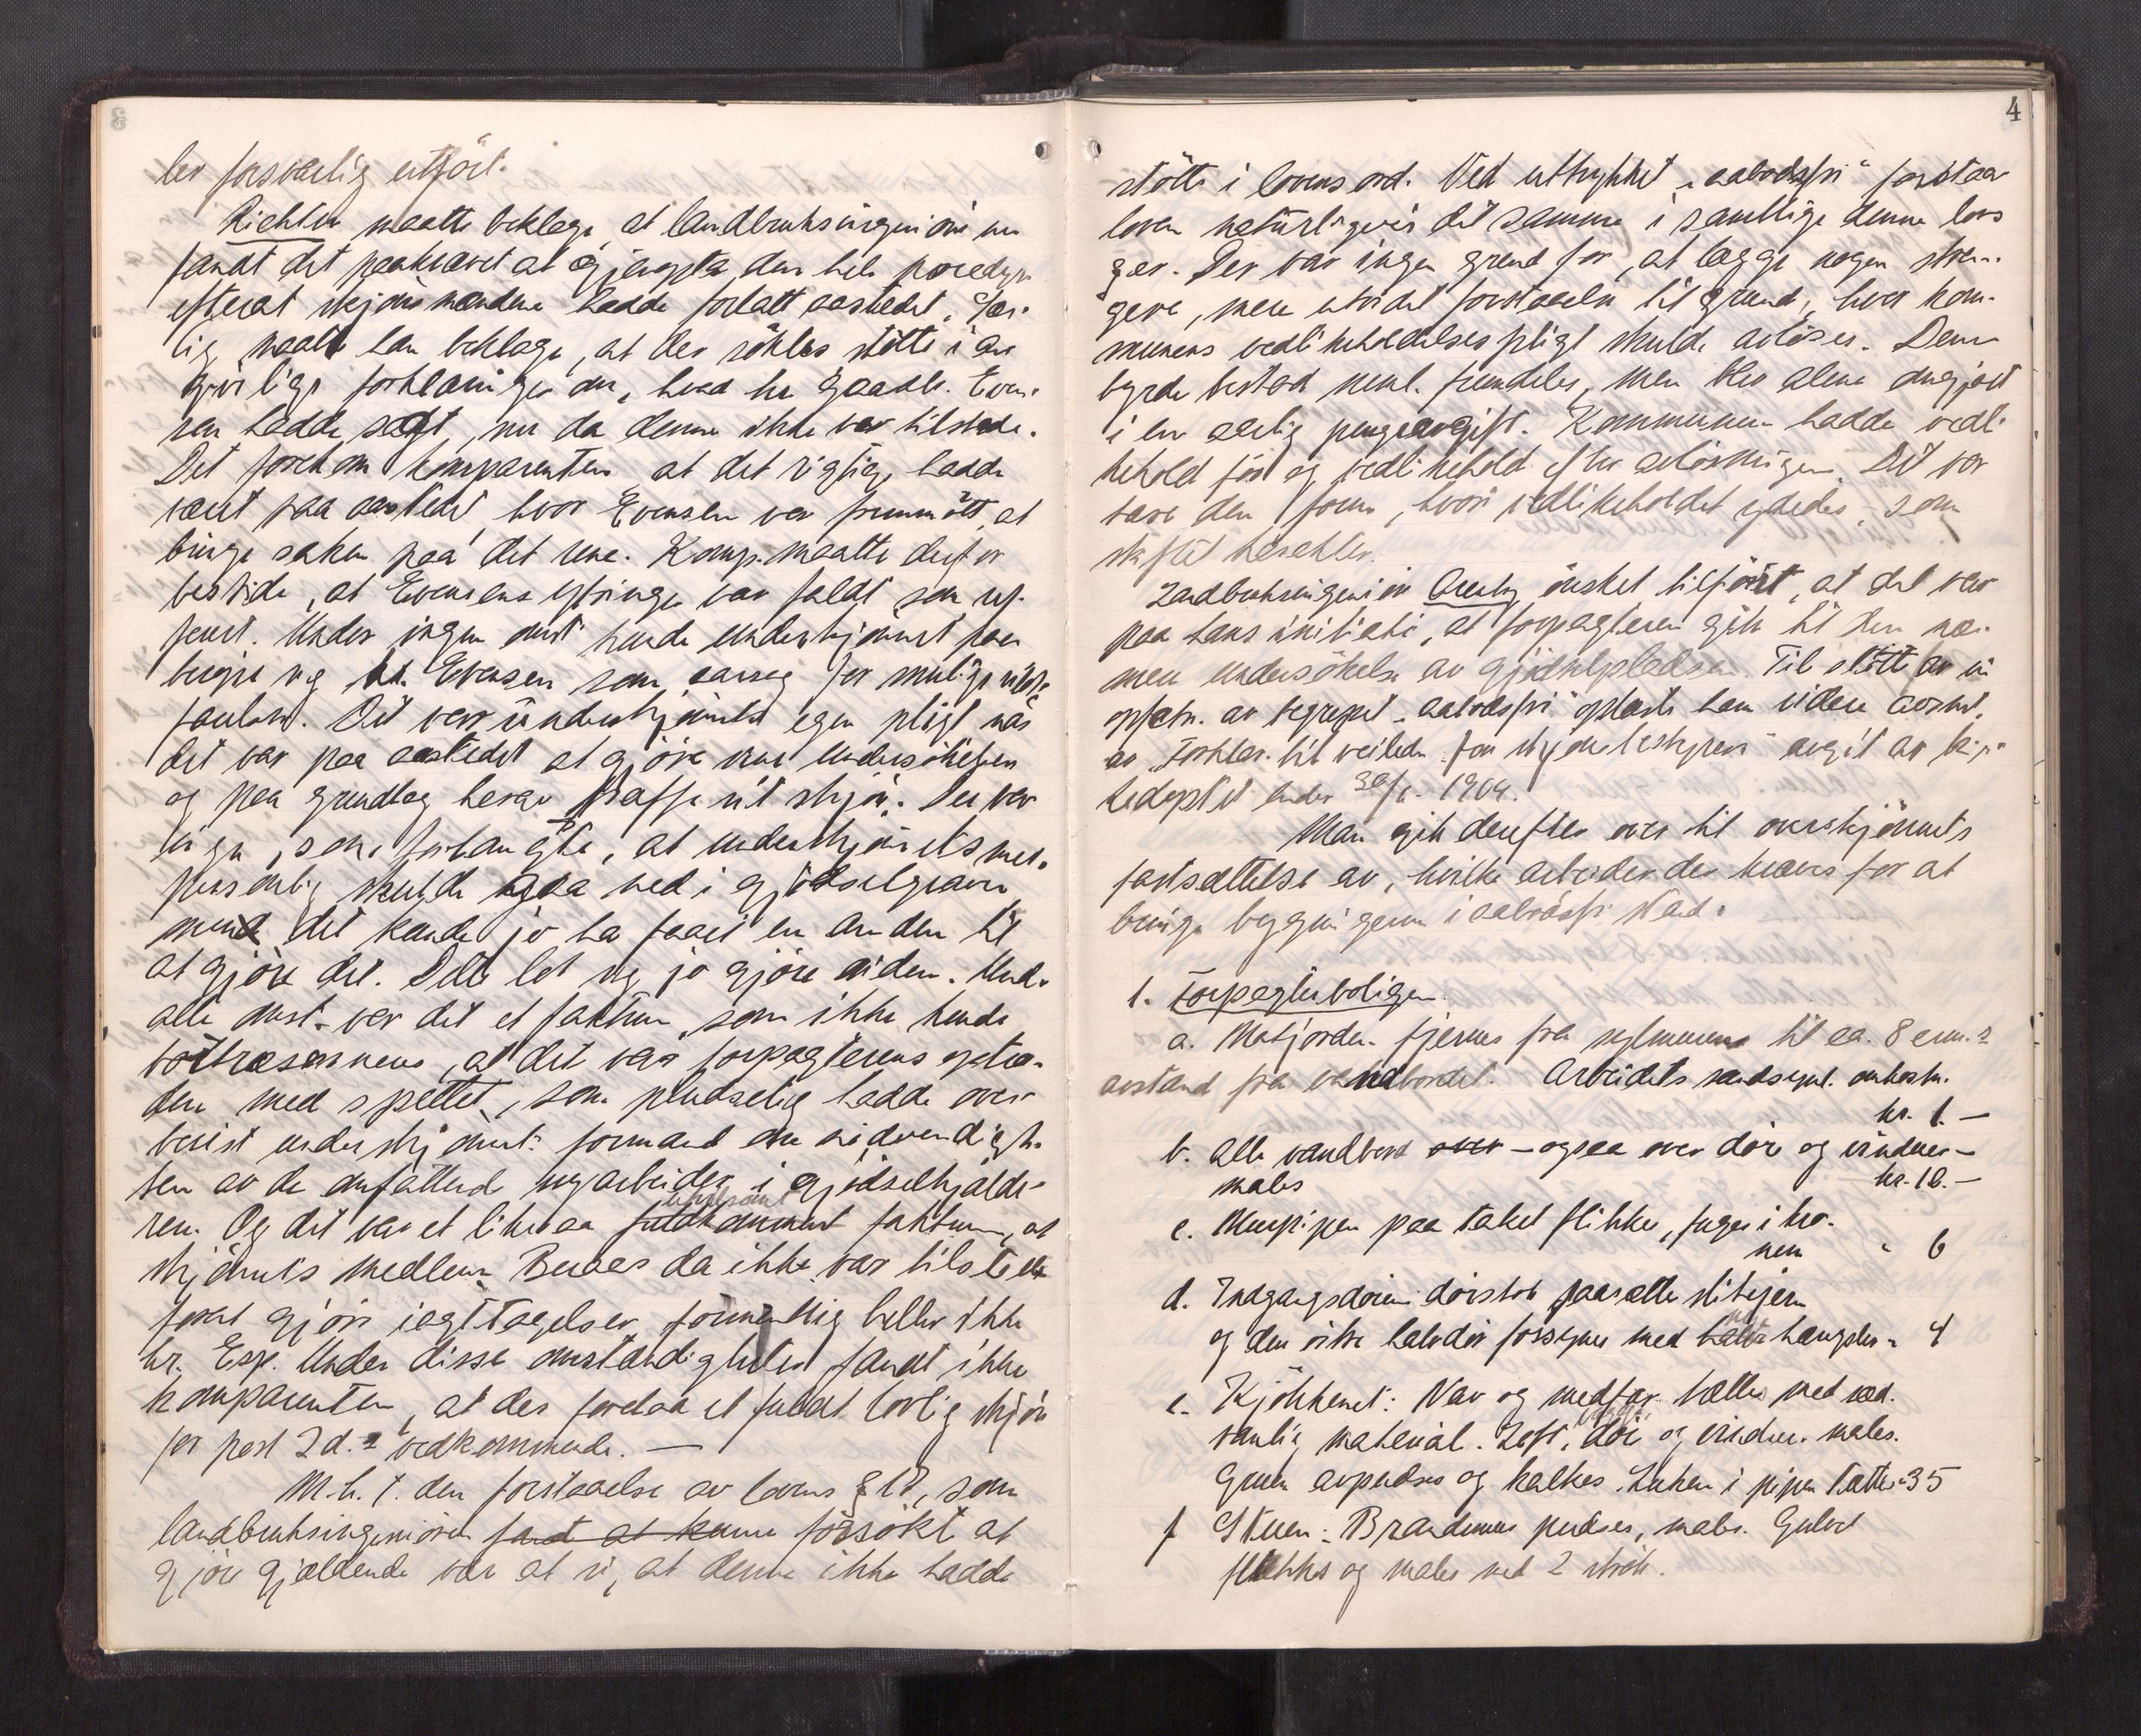 lev forsvarlig utført.
Richter maatte beklage, at landbruksingeniøren nu
fandt det paakrævet at gjengta den hele procedyre
efterat skjønsmændene hadde forlatt aastedet. Sær-
lig maatte han beklage, at der søktes støtte i an-
givelige forklaringer om, hvad hr gaardb. Even-
sen hadde sagt, nu da denne ikke var tilstede.
Det forekom komparenten at det rigtige hadde
været paa aastedet, hvor Evensen var fremmøtt, at
bringe saken paa det rene. Komp. maatte derfor
bestride, at Evensens ytringer var faldt som ref-
erert. Under ingen omst. kunde underskjønnet paa-
berope sig hr. Evensen som ansvarlig for mulige
Det var underskjønnets egen pligt naar
det var paa aastedet at gjøre sine undersøkelser
og paa grundlag herav træffe sit skjøn. Der var
ingen, som forlangte, at underskjønnets medl.
personlig skulde gaa ned i gjødselgraven
men det kunde jo ha faaet en anden til
at gjøre det. Dette let sig jo gjøre siden. Under
alle omst. var det et faktum, som ikke kunde
bortræsonneres, at det var forpagterens optræ-
den med spettet, som pludselig hadde over-
bevist underskjønnets formand om nødvendighe-
ten av de omfattende nyarbeider i gjødselkjælde-
ren. Og det var et likesaa ubestridt faktum, at
skjønnets medlem Beraas da ikke var tilstede
for at gjøre iagttagelser, formentlig heller ikke
hr. Esp. Under disse omstændigheter fandt ikke
komparenten, at der forelaa et fuldt lovlig skjøn
for post 2 d. 2 vedkommende. —
M.h.t. den forstaaelse av lovens § 18, som
landbruksingeniøren fandt at kunne forsøkt at
gjøre gjældende var at si, at denne ikke hadde
4
støtte i lovens ord. Ved uttrykket „aabodsfri" forstaar
loven naturligvis det samme i samtlige denne lovs
§er. Der var ingen grund for, at lægge nogen stren-
gere, mere utvidet forstaaelse til grund, hvor kom-
munens vedlikeholdelsespligt skulde avløses. Denne
byrde bestod neml. fremdeles, men blev alene omgjort
i en aarlig pengeavgift. Kommunen hadde vedli-
kehold før og vedlikehold efter avløsningen. Det var
bare den form, hvori vedlikeholdet ydedes, som
skiftet karakter.
Landbruksingeniør Aresvig ønsket tilført, at det var
paa hans initiativ, at forpagteren gik til den næ-
mere undersøkelse av gjødselpladsen. Til støtte av sin
opfatn. av begrepet „aabodsfri" oplæste han videre avsnit
av „Forklar. til veiledn. for skjønsbestyrere" avgit av kirke-
departet under 30/6 - 1904.
Man gik derefter over til overskjønnets
fastsættelse av, hvilke arbeider der kræves for at
bringe bygningerne i aabodsfri stand:
1. Forpagterboligen.
a. Matjorden fjernes fra sylmurene til ca. 8 cm.s
avstand fra vandbordet. Arbeidets sandsynl. omkostn.
kr. 1.—
b. Alle vandbord over — ogsaa over dør og vinduer —
males kr. 10.—
c. Murpipen paa taket flikkes, fuges i kro-
nen „ 6
d. Indgangsdøren: dørstok paasættes slitejern
og den ytre halvdør forsynes med nye hængsler „ 4
e. Kjøkkenet: Nav og medfar. tættes med sed-
vanlig material. Loft, vægge, dør og vinduer males.
Gruen avpudses og kalkes. Luken i pipen tættes „ 35
f Stuen: Brandmur pudses, males. Gulvet
flikkes og males med 2 strøk.